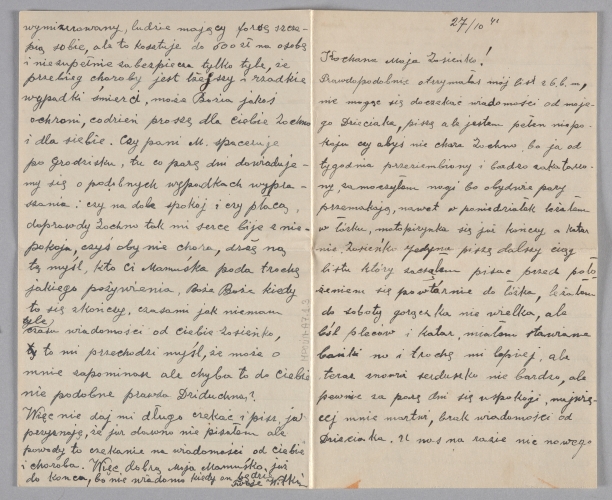 27/10 41
Kochana Moja Zosieńko!
Prawdopodobnie otrzymałaś mój list z b.m,
nie mogąc się doczekać wiadomości od moje-
go Dzieciaka, piszę ale jestem pełen niepo-
koju czy abyś nie chora Zochno, bo ja od
tygodnia przeziembiony i bardzo zakatarzo-
ny, zamoczyłem nogi bo obydwie pary
przemakają, nawet w poniedziałek leżałem
w łóżku, motopirynka się już kończy a katar
nie, Zosieńko jedyna piszę dalszy ciąg
listu który zacząłem pisać przed poło
żeniem się powtórnie do łóżka, leżałem
do soboty gorączka nie wielka, ale
ból pleców i katar, miałem stawiane
bańki no i trochę mi lepiej, ale
teraz znowu serduszko nie bardzo, ale
pewnie za parę dni się uspokoji, najwię-
cej mnie martwi, brak wiadomości od
Dzieciaka. U nas na razie nic nowego
wymizerowany, ludzie mający forsę szcze-
pią sobie, ale to kosztuje do 600 zł na osobę
i niezupełnie zabezpiecza tylko tyle, że
przebieg choroby jest lżejszy i rzadkie
wypadki śmierci, może Bozia jakoś
ochroni, codzień proszę dla Ciebie Zochno
i dla siebie. Czy pani M. spaceruje
po Grodzisku, tu co parę dni dowiaduje-
my się o podobnych wypadkach wypra-
szania i czy na dole spokój i czy płacą,
doprawdy Zochno tak mi serce bije z nie-
pokoju, czyś aby nie chora, drżę na
tę myśl, kto Ci Mamuśka poda trochę
jakiego pożywienia, Boże Boże kiedy
to się skończy, czasami jak niemam
tyle
czasu wiadomości od Ciebie Zosieńko,
to mi przechodzi myśl, że może o
mnie zapominasz ale chyba to do Ciebie
nie podobne prawda Dziduchna?
Więc nie daj mi długo czekać i pisz, ja
przyznaję, że już dawno nie pisałem ale
powody to czekanie na wiadomości od Ciebie
i choroba. Więc dobra Moja Mamuśko, już
do końca, bo nie wiadomo kiedy on będzie